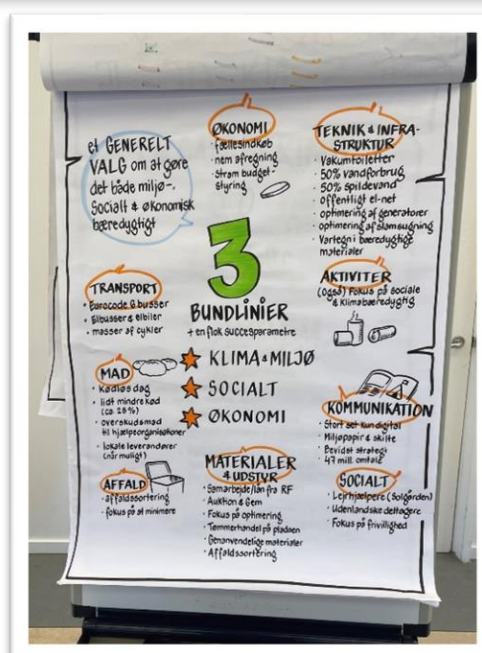 et GENERELT
VALG om at gøre
det både miljø-,
Socialt & økonomisk
bæredygtigt
ØKONOMI
· fællesindkøb
· nem afregning
· stram budget-
styring
TEKNIK & INFRA-
STRUKTUR
· Vakumtoiletter
· 50% vandforbrug
· 50% spildevand
· offentligt el-net
· optimering af generatorer
· optimering af slamsugning
· Vartegn i bæredygtige
materialer
3
BUNDLINIER
+ en flok succesparametre
KLIMA & MILJØ
SOCIALT
ØKONOMI
TRANSPORT
· Eurocode 6 busser
· Elbusser & elbiler
· masser af cykler
AKTIVITER
(også) Fokus på sociale
& Klimabæredygtig
MAD
· Kødløs dag
· lidt mindre kød
(ca. 28%)
· overskudsmad
til hjælpeorganisationer
· lokale leverandører
(når muligt)
KOMMUNIKATION
· Stort set kun digital
· Miljøpapir & skilte
· Bevidst strategi
· 47 mill. omtale
AFFALD
· affaldssortering
· fokus på at minimere
MATERIALER
& UDSTYR
· Samarbejde/lån fra RF
· Auktion & Gem
· Fokus på optimering
· Tømmerhandel på pladsen
· Genanvendelige materialer
· Affaldssortering
SOCIALT
· Lejrhjælpere (Solgården)
· Udenlandske deltagere
· Fokus på frivillighed